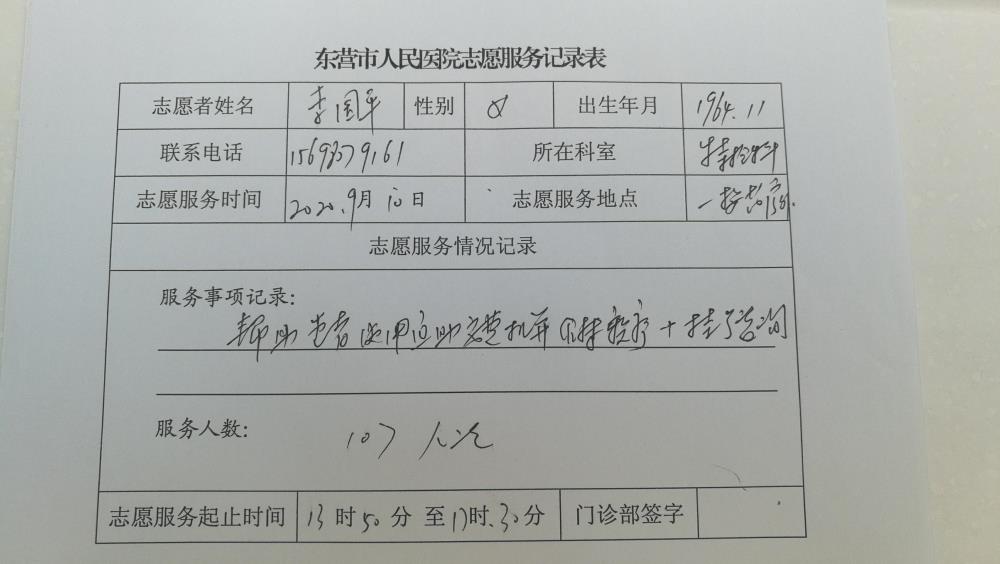 东营市人民医院志愿服务记录表
志愿者姓名 李国平 性别 女 出生年月 1964.11
联系电话 15693779161 所在科室 特检科
志愿服务时间 2020.9月10日 志愿服务地点 一楼
志愿服务情况记录
服务事项记录:
帮助患者使用自助 机 挂号 咨询
服务人数: 107人次
志愿服务起止时间 13时50分至17时.30分 门诊部签字